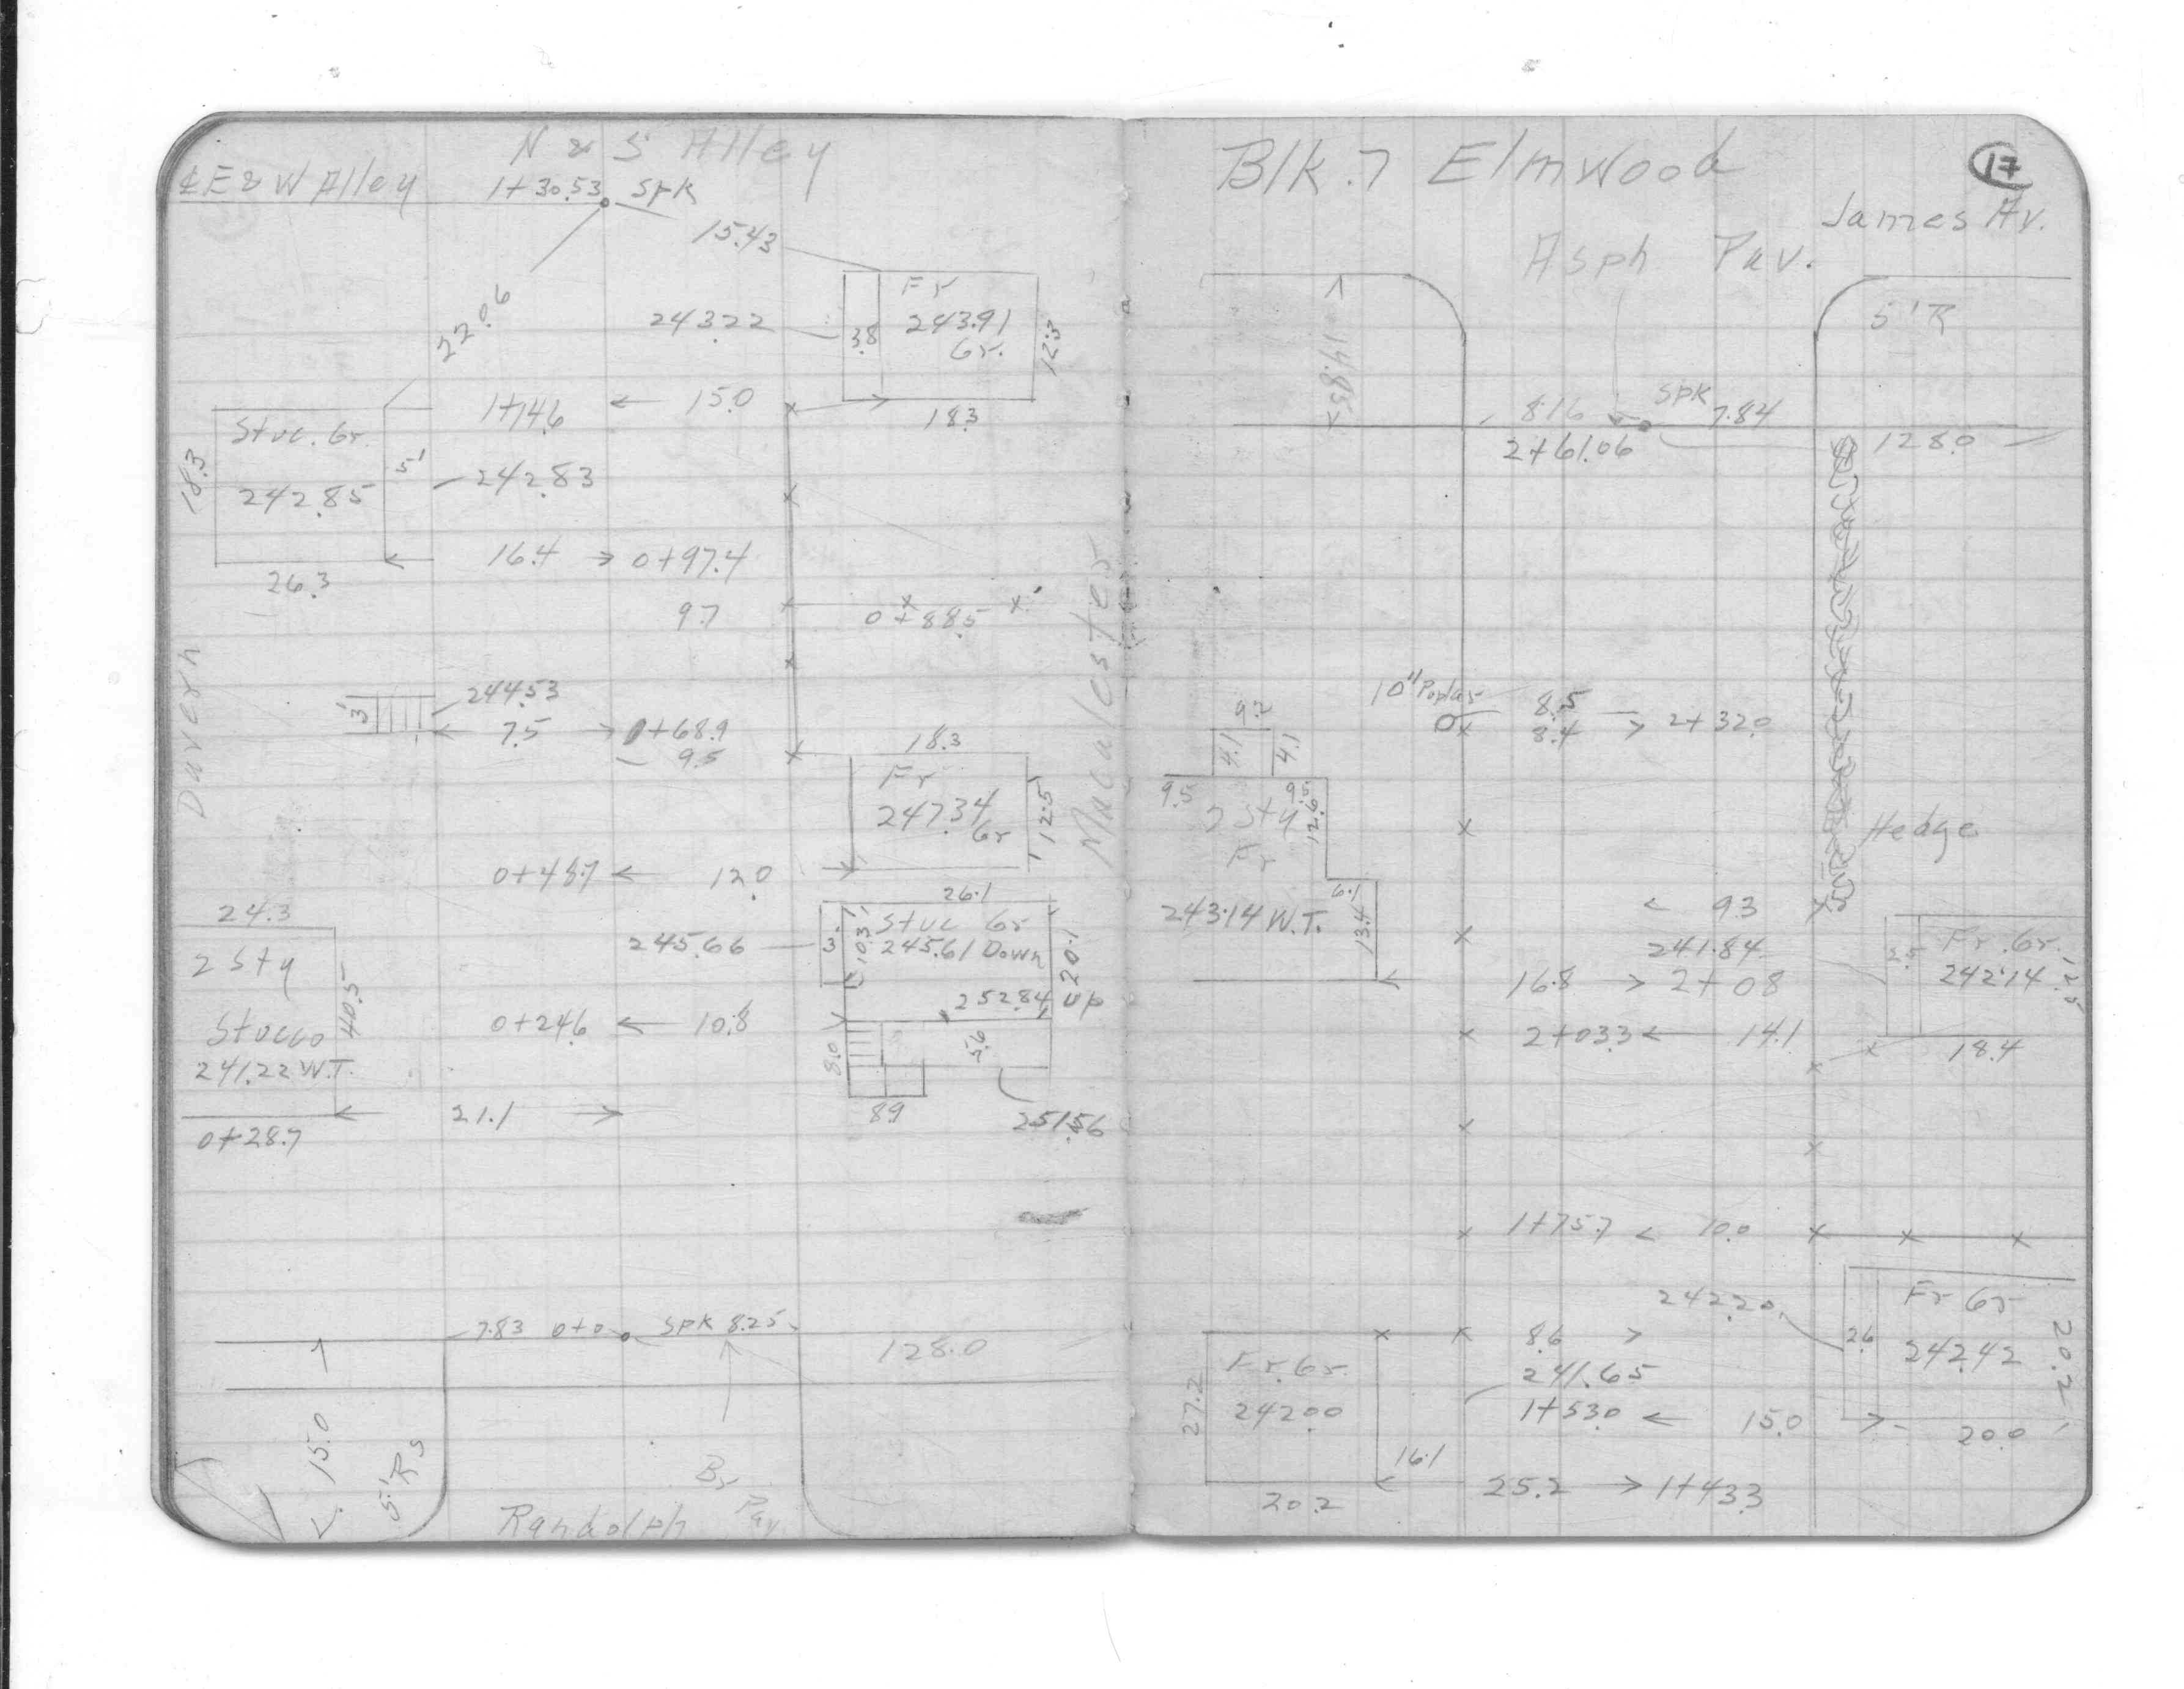 N & S Alley
℄ E & W Alley
1+30.53 Spk
15.43
22.06
243.22
3.8
Fr
243.91
Gr.
12.3
18.3
1+14.6 ← 15.0
Stuc. Gr.
242.85
18.3
5'
242.83
26.3
16.4 → 0+97.4
9.7
0+88.5
Davern
Macalester
244.53
3'
7.5 → 0+68.9
9.5
18.3
Fr
247.34
Gr
12.5
0+48.7 ← 12.0
26.1
Stuc Gr
245.61 Down
10.3
3'
245.66
20.1
252.84 up
24.3
2 Sty
Stucco
241.22 W.T.
40.5
0+24.6 ← 10.8
8.0
5.6
8.9
251.56
21.1
0+28.7
7.83 0+0 Spk 8.25
128.0
15.0
5' Rs
Br
Pav
Randolph
Blk. 7 Elmwood
17
James Av.
Asph Pav.
14.85
5' R
8.16 Spk 7.84
2+61.06
128.0
10" Poplar
8.5
8.4 → 2+32.0
9.2
4.1
4.1
9.5
9.5
2 Sty
Fr
12.6
243.14 W.T.
6.1
13.4
Hedge
← 9.3
241.84
16.8 → 2+08
2.5
Fr. Gr.
242.14
2+03.3 ← 14.1
18.4
1+75.7 ← 10.0
242.20
2.6
Fr Gr
242.42
20.2
8.6 →
241.65
Fr. Gr.
242.00
27.2
1+53.0 ← 15.0
20.0
16.1
25.2 → 1+43.3
20.2